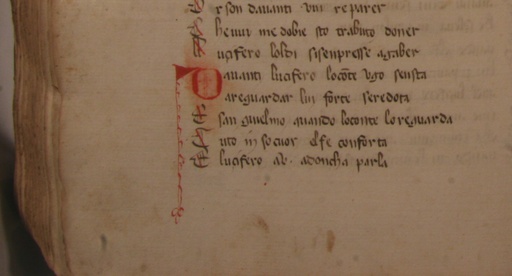 r son dauanti vui reparer
he vuy me dobie sto trabuto doner
ucifero loldi si sen presse a gaber
Dauanti lucifero loconte vgo sensta
areguardar lui forte seredota
san guielmo quando loconte lo reguarda
uto in so cuor el se conforta
lucifero av. adoncha parla